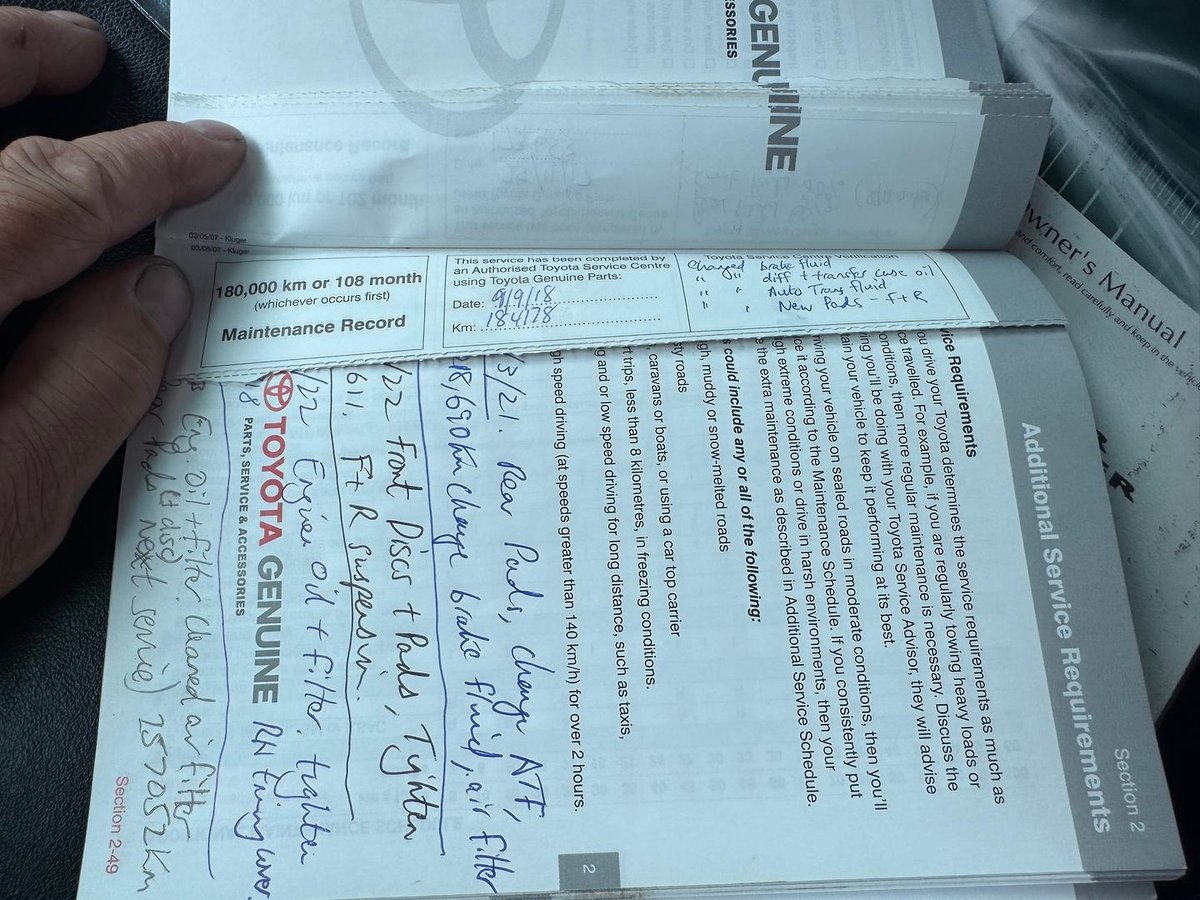 GENUINE
ESSORIES
03/05/07 - Kluger
03/05/07 - Kluger
180,000 km or 108 month
(whichever occurs first)
Maintenance Record
This service has been completed by
an Authorised Toyota Service Centre
using Toyota Genuine Parts:
Date: 9/9/18
Km: 184178
Toyota Service Verification
Changed brake fluid
" " diff + transfer case oil
" " Auto Trans fluid
" " New Pads - F+R
Owner's Manual
and comfort, read carefully and keep in the vehic
Section 2
Additional Service Requirements
vice Requirements
ou drive your Toyota determines the service requirements as much as
ce travelled. For example, if you are regularly towing heavy loads or
conditions, then more regular maintenance is necessary. Discuss the
ng you'll be doing with your Toyota Service Advisor, they will advise
ain your vehicle to keep it performing at its best.
riving your vehicle on sealed roads in moderate conditions, then you'll
ce it according to the Maintenance Schedule. If you consistently put
gh extreme conditions or drive in harsh environments, then your
e the extra maintenance as described in Additional Service Schedule.
s could include any or all of the following:
gh, muddy or snow-melted roads
sty roads
caravans or boats, or using a car top carrier
rt trips, less than 8 kilometres, in freezing conditions.
g and or low speed driving for long distance, such as taxis,
gh speed driving (at speeds greater than 140 km/h) for over 2 hours.
2
/3/21. Rear Pads, change ATF,
218,690km change brake fluid, air filter
/22 Front Discs + Pads, Tighten
611. F+R suspension.
/22 Engine oil + filter, tighten
RH timing cover.
TOYOTA GENUINE
PARTS, SERVICE & ACCESSORIES
Eng. oil + filter. cleaned air filter
Pads (+ disc) next service) 257052km
Section 2-49